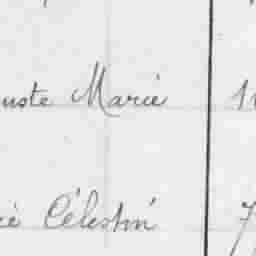 uste Marie
é Célestin 7